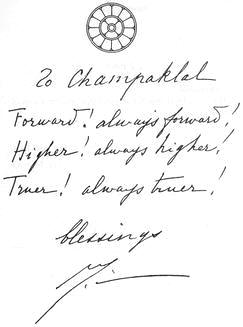 To Champaklal
Forward! always forward!
Higher! always higher!
Truer! always truer!
blessings